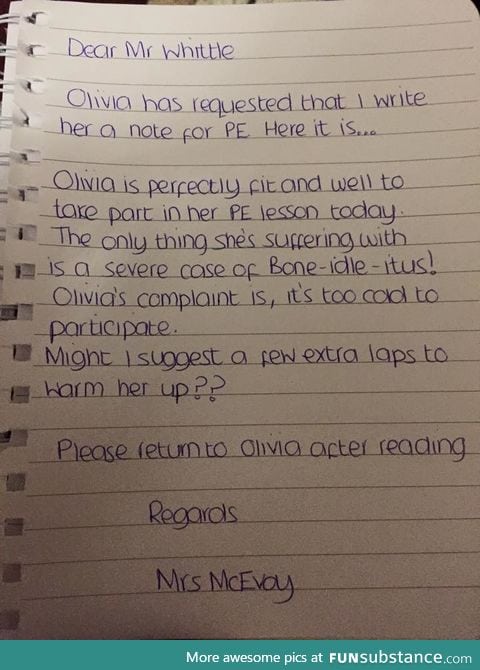 Dear Mr Whittle
Olivia has requested that I write
her a note for PE Here it is...
Olivia is perfectly fit and well to
take part in her PE lesson today.
The only thing she's suffering with
is a severe case of Bone-idle-itus!
Olivia's complaint is, it's too cold to
participate.
Might I suggest a few extra laps to
warm her up??
Please return to Olivia after reading
Regards
Mrs McEvoy
More awesome pics at FUNsubstance.com